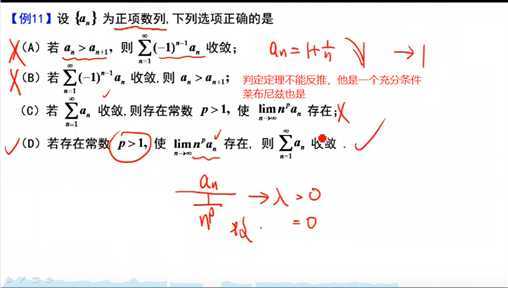 【例11】设 {aₙ} 为正项数列,下列选项正确的是
(A) 若 aₙ > aₙ₊₁, 则 ∑_{n=1}^{∞} (-1)ⁿ⁻¹aₙ 收敛; aₙ = 1+1/n ↘ → 1
(B) 若 ∑_{n=1}^{∞} (-1)ⁿ⁻¹aₙ 收敛,则 aₙ > aₙ₊₁; 判定定理不能反推,他是一个充分条件
莱布尼兹也是
(C) 若 ∑_{n=1}^{∞} aₙ 收敛,则存在常数 p > 1, 使 lim_{n→∞} nᵖaₙ 存在;
(D) 若存在常数 p > 1, 使 lim_{n→∞} nᵖaₙ 存在, 则 ∑_{n=1}^{∞} aₙ 收敛.
aₙ / (1/nᵖ) → λ > 0
= 0